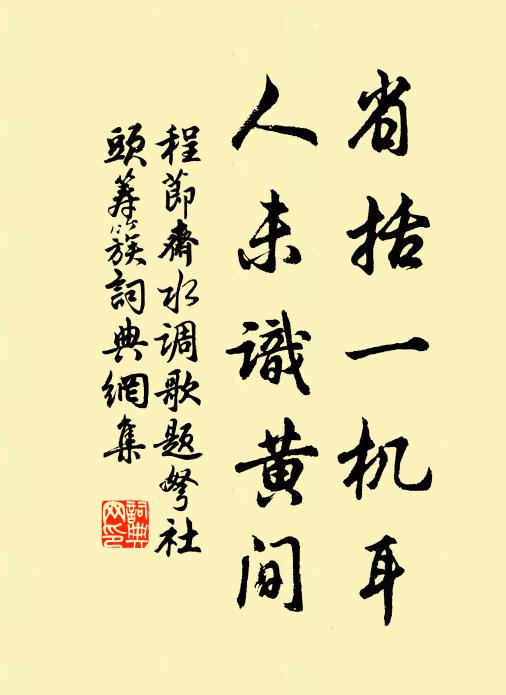 省括一机耳
人未识黄间
程節齋水调歌题弩社
頭筹簇詞典網集
詞典网印